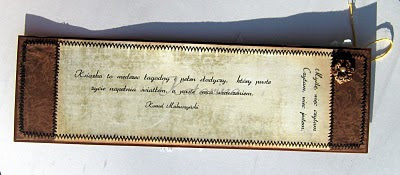 Książka to mędrzec łagodny i pełen słodyczy, który puste
życie napełnia światłem, a puste serca wzruszeniem.
Kornel Makuszyński
Myślę, więc czytam
Czytam, więc jestem.